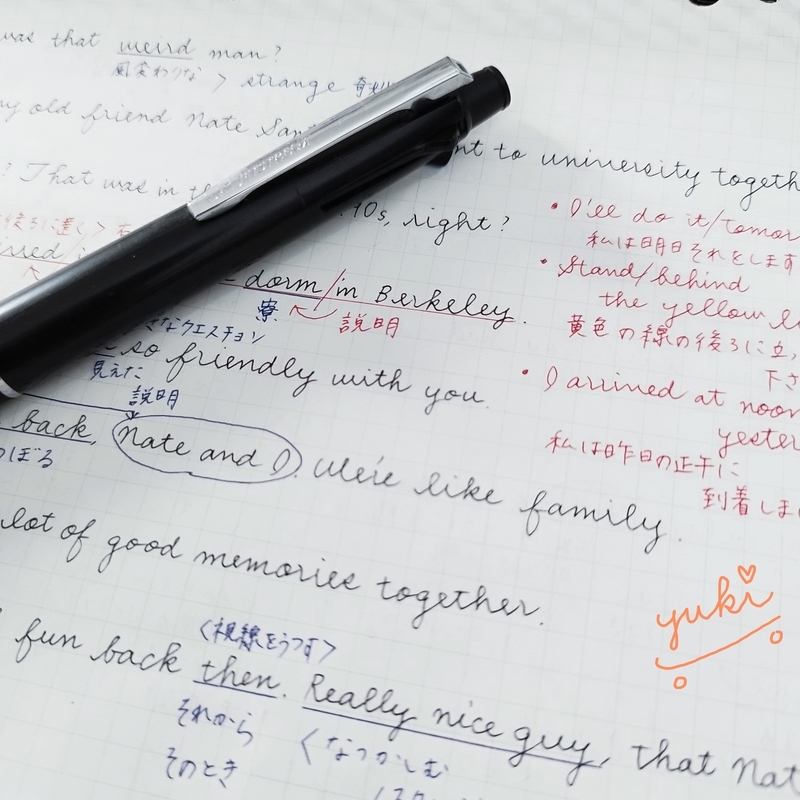 was that weird man?
風変わりな > strange
my old friend Nate
to university
? That was in
10s, right?
• I'll do it/
私は明日それをします
後ろに置く>
dorm/in Berkeley.
寮 説明
• Stand/behind
the yellow
黄色の線の後ろに立
下さ
クエスチョン
so friendly with you.
見えた
説明
• I arrived at noon
私は昨日の正午に
到着しま
back, Nate and I. We're like family.
lot of good memories together.
yuki
<視線をうつす>
fun back then. Really nice guy, that
それから
そのとき
<なつかしむ